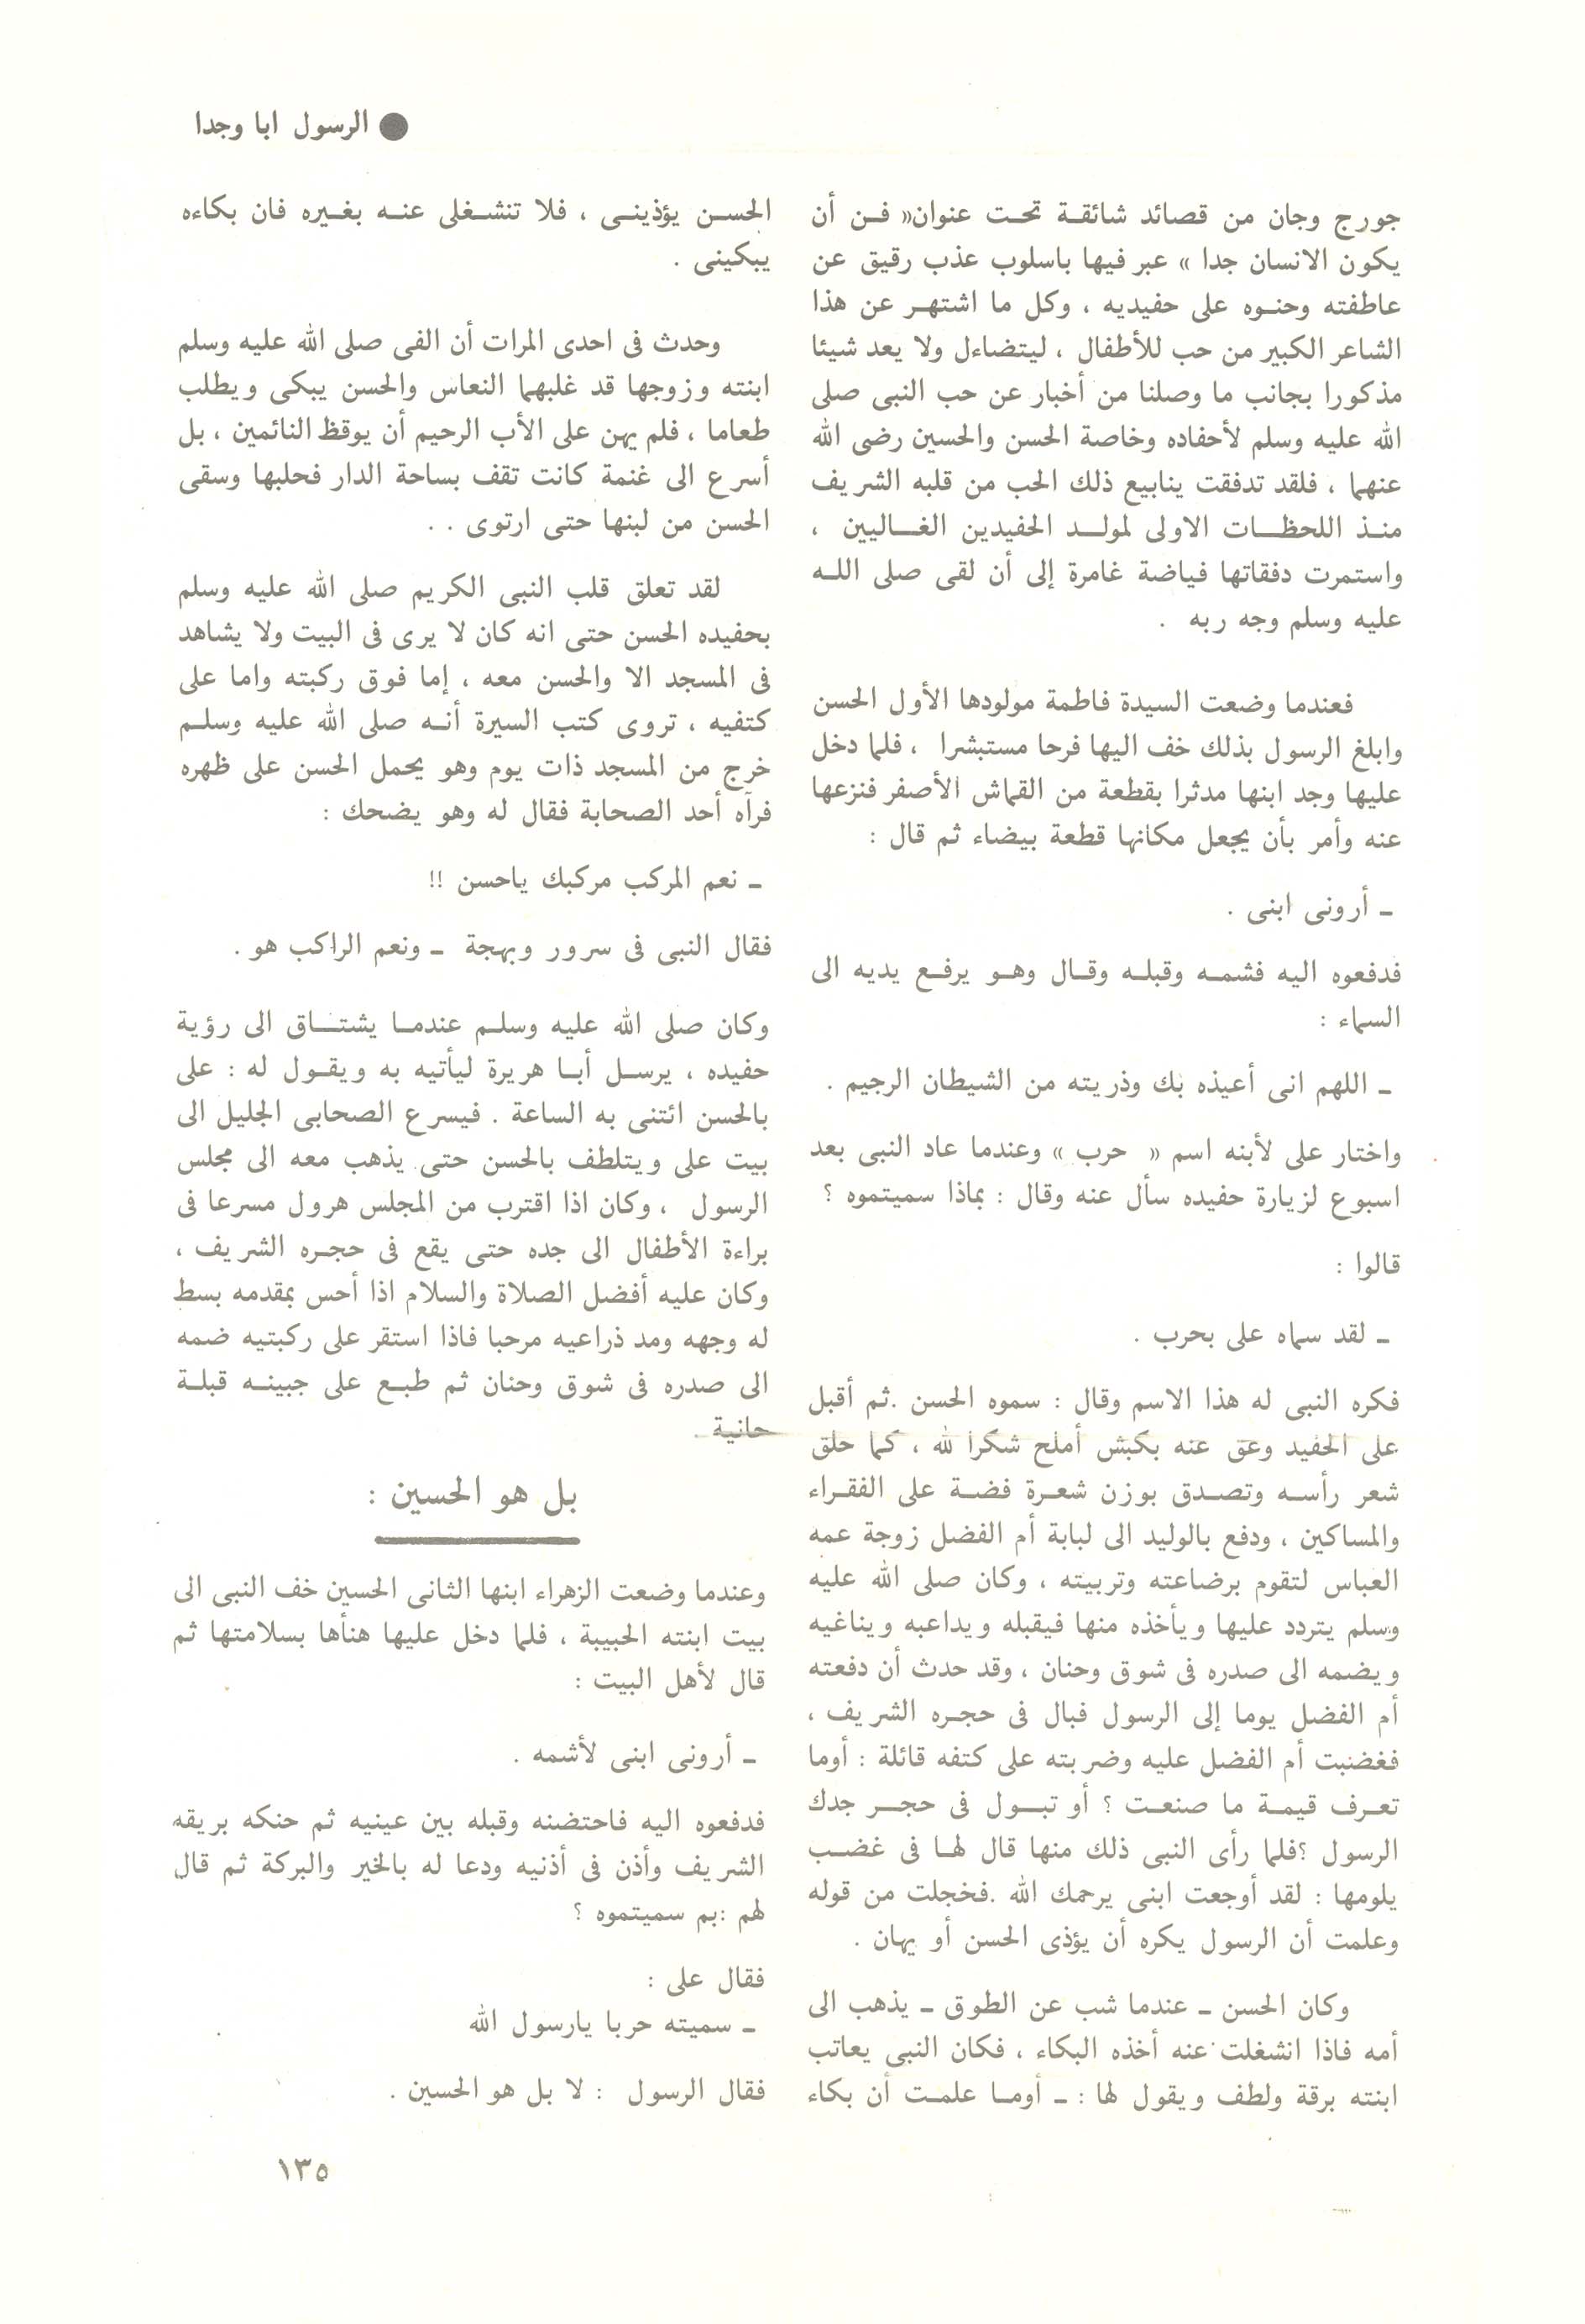 ● الرسول ابا وجدا
جورج وجان من قصائد شائقة تحت عنوان« فن أن
يكون الانسان جدا » عبر فيها باسلوب عذب رقيق عن
عاطفته وحنوه على حفيديه ، وكل ما اشتهر عن هذا
الشاعر الكبير من حب للأطفال ، ليتضاءل ولا يعد شيئا
مذكورا بجانب ما وصلنا من أخبار عن حب النبى صلى
الله عليه وسلم لأحفاده وخاصة الحسن والحسين رضى الله
عنهما ، فلقد تدفقت ينابيع ذلك الحب من قلبه الشريف
منذ اللحظات الاولى لمولد الحفيدين الغاليين ،
واستمرت دفقاتها فياضة غامرة إلى أن لقى صلى الله
عليه وسلم وجه ربه .
فعندما وضعت السيدة فاطمة مولودها الأول الحسن
وابلغ الرسول بذلك خف اليها فرحا مستبشرا ، فلما دخل
عليها وجد ابنها مدثرا بقطعة من القماش الأصفر فنزعها
عنه وأمر بأن يجعل مكانها قطعة بيضاء ثم قال :
ـ أرونى ابنى .
فدفعوه اليه فشمه وقبله وقال وهو يرفع يديه الى
السماء :
ـ اللهم انى أعيذه بك وذريته من الشيطان الرجيم .
واختار على لأبنه اسم « حرب » وعندما عاد النبى بعد
اسبوع لزيارة حفيده سأل عنه وقال : بماذا سميتموه ؟
قالوا :
ـ لقد سماه على بحرب .
فكره النبى له هذا الاسم وقال : سموه الحسن .ثم أقبل
على الحفيد وعق عنه بكبش أملح شكرا لله ، كما حلق
شعر رأسه وتصدق بوزن شعرة فضة على الفقراء
والمساكين ، ودفع بالوليد الى لبابة أم الفضل زوجة عمه
العباس لتقوم برضاعته وتربيته ، وكان صلى الله عليه
وسلم يتردد عليها ويأخذه منها فيقبله ويداعبه ويناغيه
ويضمه الى صدره فى شوق وحنان ، وقد حدث أن دفعته
أم الفضل يوما إلى الرسول فبال فى حجره الشريف ،
فغضبت أم الفضل عليه وضربته على كتفه قائلة : أوما
تعرف قيمة ما صنعت ؟ أو تبول فى حجر جدك
الرسول ؟فلما رأى النبى ذلك منها قال لها فى غضب
يلومها : لقد أوجعت ابنى يرحمك الله .فخجلت من قوله
وعلمت أن الرسول يكره أن يؤذى الحسن أو يهان .
وكان الحسن ـ عندما شب عن الطوق ـ يذهب الى
أمه فاذا انشغلت عنه أخذه البكاء ، فكان النبى يعاتب
ابنته برقة ولطف ويقول لها : ـ أوما علمت أن بكاء
الحسن يؤذينى ، فلا تنشغلى عنه بغيره فان بكاءه
يبكينى .
وحدث فى احدى المرات أن الفى صلى الله عليه وسلم
ابنته وزوجها قد غلبهما النعاس والحسن يبكى ويطلب
طعاما ، فلم يهن على الأب الرحيم أن يوقظ النائمين ، بل
أسرع الى غنمة كانت تقف بساحة الدار فحلبها وسقى
الحسن من لبنها حتى ارتوى . .
لقد تعلق قلب النبى الكريم صلى الله عليه وسلم
بحفيده الحسن حتى انه كان لا يرى فى البيت ولا يشاهد
فى المسجد الا والحسن معه ، إما فوق ركبته واما على
كتفيه ، تروى كتب السيرة أنه صلى الله عليه وسلم
خرج من المسجد ذات يوم وهو يحمل الحسن على ظهره
فرآه أحد الصحابة فقال له وهو يضحك :
ـ نعم المركب مركبك ياحسن !!
فقال النبى فى سرور وبهجة ـ ونعم الراكب هو .
وكان صلى الله عليه وسلم عندما يشتاق الى رؤية
حفيده ، يرسل أبا هريرة ليأتيه به ويقول له : على
بالحسن ائتنى به الساعة . فيسرع الصحابى الجليل الى
بيت على ويتلطف بالحسن حتى يذهب معه الى مجلس
الرسول ، وكان اذا اقترب من المجلس هرول مسرعا فى
براءة الأطفال الى جده حتى يقع فى حجره الشريف ،
وكان عليه أفضل الصلاة والسلام اذا أحس بمقدمه بسط
له وجهه ومد ذراعيه مرحبا فاذا استقر على ركبتيه ضمه
الى صدره فى شوق وحنان ثم طبع على جبينه قبلة
حانية .
بل هو الحسين :
وعندما وضعت الزهراء ابنها الثانى الحسين خف النبى الى
بيت ابنته الحبيبة ، فلما دخل عليها هنأها بسلامتها ثم
قال لأهل البيت :
ـ أرونى ابنى لأشمه .
فدفعوه اليه فاحتضنه وقبله بين عينيه ثم حنكه بريقه
الشريف وأذن فى أذنيه ودعا له بالخير والبركة ثم قال
لهم :بم سميتموه ؟
فقال على :
ـ سميته حربا يارسول الله
فقال الرسول : لا بل هو الحسين .
١٣٥